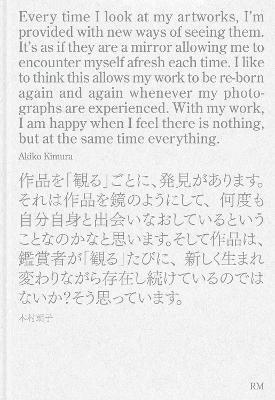 Every time I look at my artworks, I'm
provided with new ways of seeing them.
It's as if they are a mirror allowing me to
encounter myself afresh each time. I like
to think this allows my work to be re-born
again and again whenever my photo-
graphs are experienced. With my work,
I am happy when I feel there is nothing,
but at the same time everything.
Akiko Kimura
作品を「観る」ごとに、発見があります。
それは作品を鏡のようにして、何度も
自分自身と出会いなおしているという
ことなのかなと思います。そして作品は、
鑑賞者が「観る」たびに、新しく生まれ
変わりながら存在し続けているのでは
ないか?そう思っています。
木村
RM